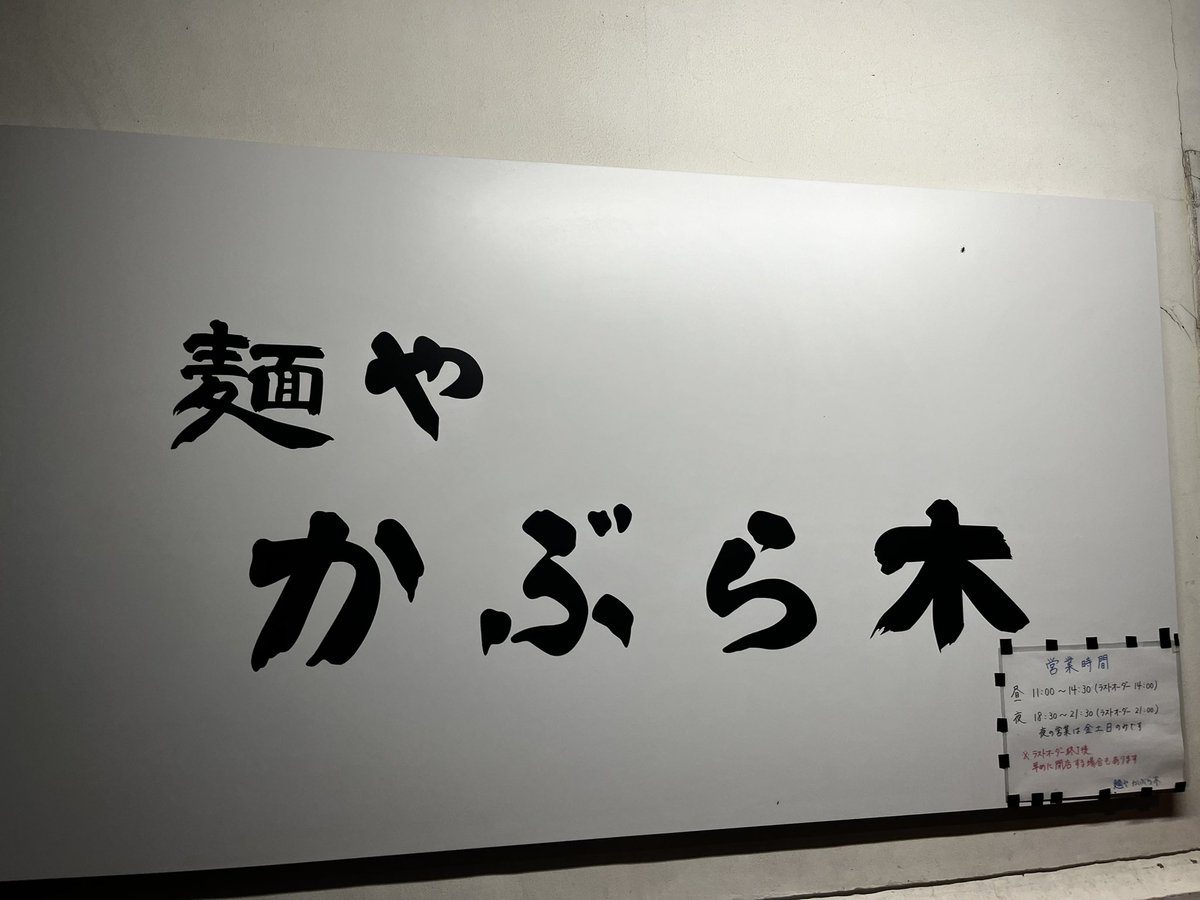 麺や
かぶら木
営業時間
昼 11:00〜14:30(ラストオーダー 14:00)
夜 18:30〜21:30(ラストオーダー 21:00)
夜の営業は金土日のみです
※ラストオーダー終了後
早めに閉店する場合もあります
麺や かぶら木